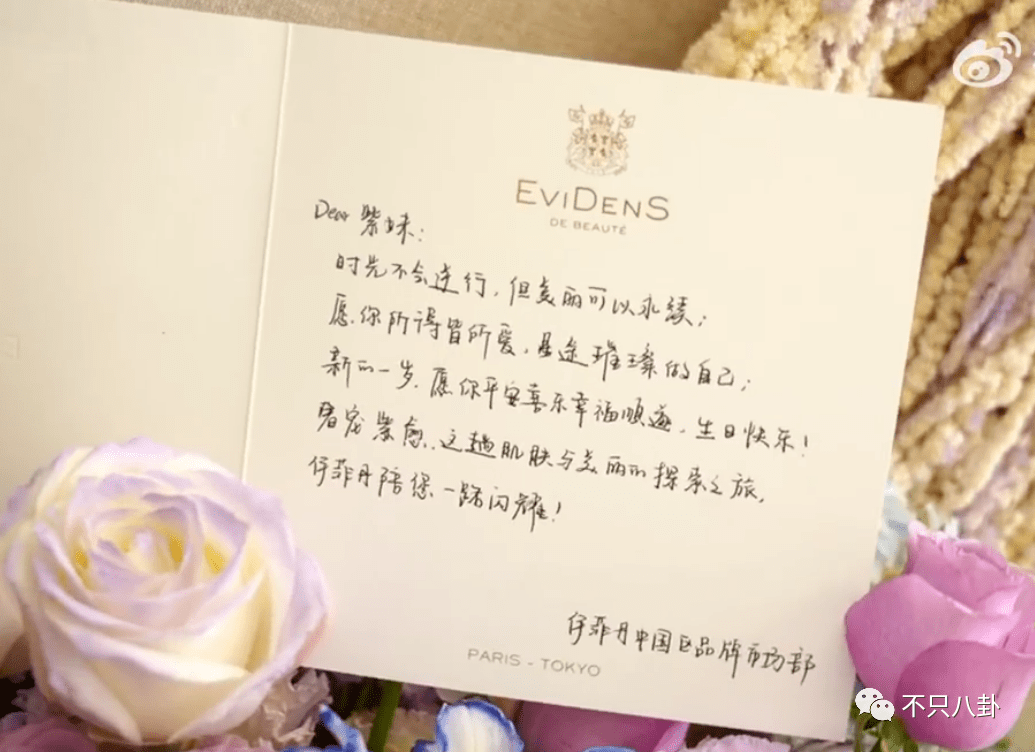 EVIDENS
DE BEAUTÉ
Dear 紫妹:
时光不会逆行,但美丽可以永续;
愿你所得皆所爱,星途璀璨做自己;
新的一岁,愿你平安喜乐幸福顺遂,生日快乐!
紫愈,这趟肌肤与美丽的探索之旅,
伊菲丹陪您一路闪耀!
伊菲丹中国区品牌市场部
PARIS - TOKYO
不只八卦